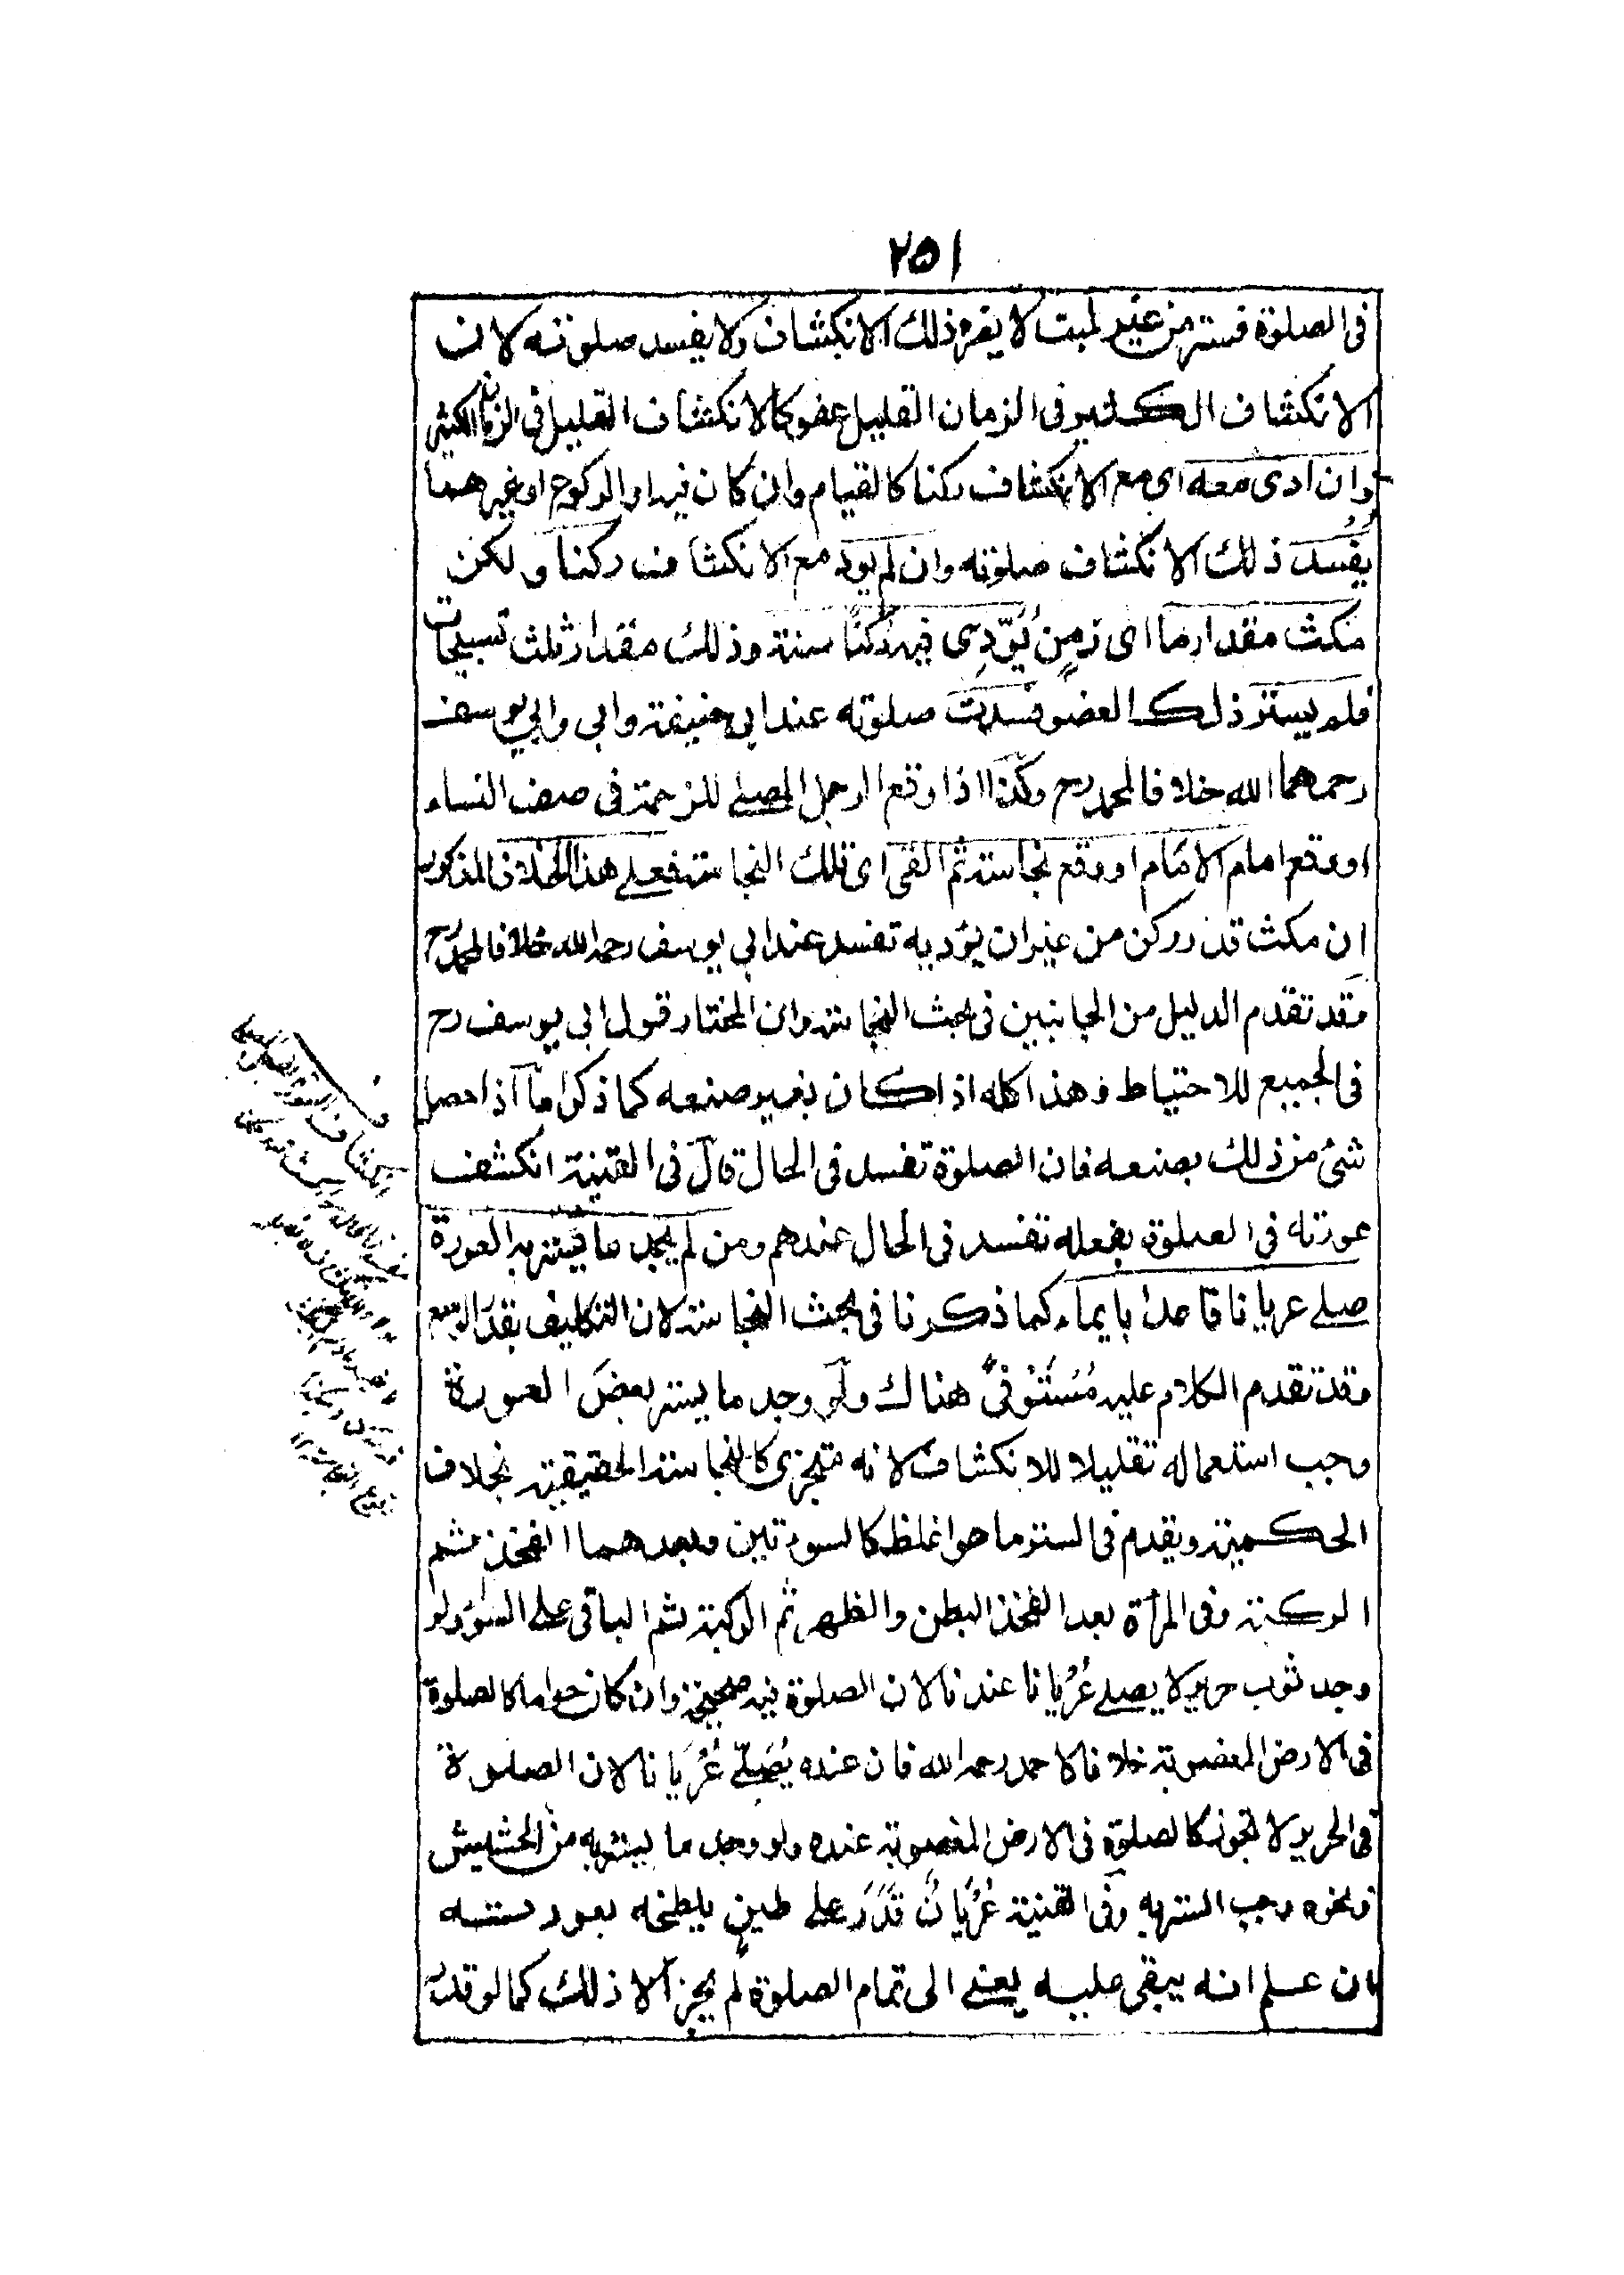 ٢٥١
فى الصلوة فستر من غير لبث لا يضره ذلك الانكشاف ولا يفسد صلوته لان
الانكشاف الكثير فى الزمان القليل عفو كالانكشاف القليل فى الزمان الكثير
وان ادى معه اى مع الانكشاف ركنا كالقيام وان كان فيه او الركوع او غيرهما
يُفسد ذلك الانكشاف صلوته وان لم يؤد مع الانكشاف ركنا ولكن
مكث مقدار ما اى زمنٍ يُؤدِى فيه رُكنًا سنة وذلك مقدار ثلث تسبيحات
فلم يستر ذلك العضو فسدت صلوته عند ابى حنيفة وابى وابي يوسف
رحمهما الله خلافا لمحمد رح وكذا اذا وقع الرجل المصلے للزحمة فى صف النساء
او وقع امام الامام او وقع نجاسة ثم القى اى تلك النجاسة فعلے هذا الخلاف المذكور
ان مكث قدر ركن من غير ان يؤديه تفسد عند ابي يوسف رحمه الله خلافا لمحمد رح
وقد تقدم الدليل من الجانبين فى بحث النجاسة وان المختار قول ابى يوسف رح
فى الجميع للاحتياط وهذا كله اذا كان بغير صنعه كما ذكر اما اذا حصل
شئ من ذلك بصنعه فان الصلوة تفسد فى الحال قال فى القنية انكشف
عورته في الصلوة بفعله تفسد فى الحال عندهم ومن لم يجد ما يستر به العورة
صلے عريانا قاعدا بايماء كما ذكرنا فى بحث النجاسة لان التكليف بقدر الوسع
وقد تقدم الكلام عليه مُسْتَوْفىً هناك ولو وجد ما يستر بعض العورة
وجب استعماله تقليلا للانكشاف لانه متجزى كالنجاسة الحقيقية بخلاف
الحكمية ويقدم فى الستر ما هو اغلظ كالسوءتين وبعدهما الفخذ ثم
الركبة وفى المرأة بعد الفخذ البطن والظهر ثم الركبة ثم الباقى على السواء ولو
وجد ثوب حرير لا يصلے عُرْيانا عندنا لان الصلوة فيه صحيحة وان كان حراما كالصلوة
فى الارض المغصوبة خلافا لاحمد رحمه الله فان عنده يُصَلّے عُرْيَانا لان الصلوة
فى الحرير لا تجوز كالصلوة فى الارض المغصوبة عنده ولو وجد ما يستر به من الحشيش
ونحوه وجب الستر به وفى القنية عُرْيانٌ قَدَرَ على طينٍ يلطخه بعورسته
ان علم انه يبقى عليه يعنے الى تمام الصلوة لم يجز الا ذلك كما لو قدر